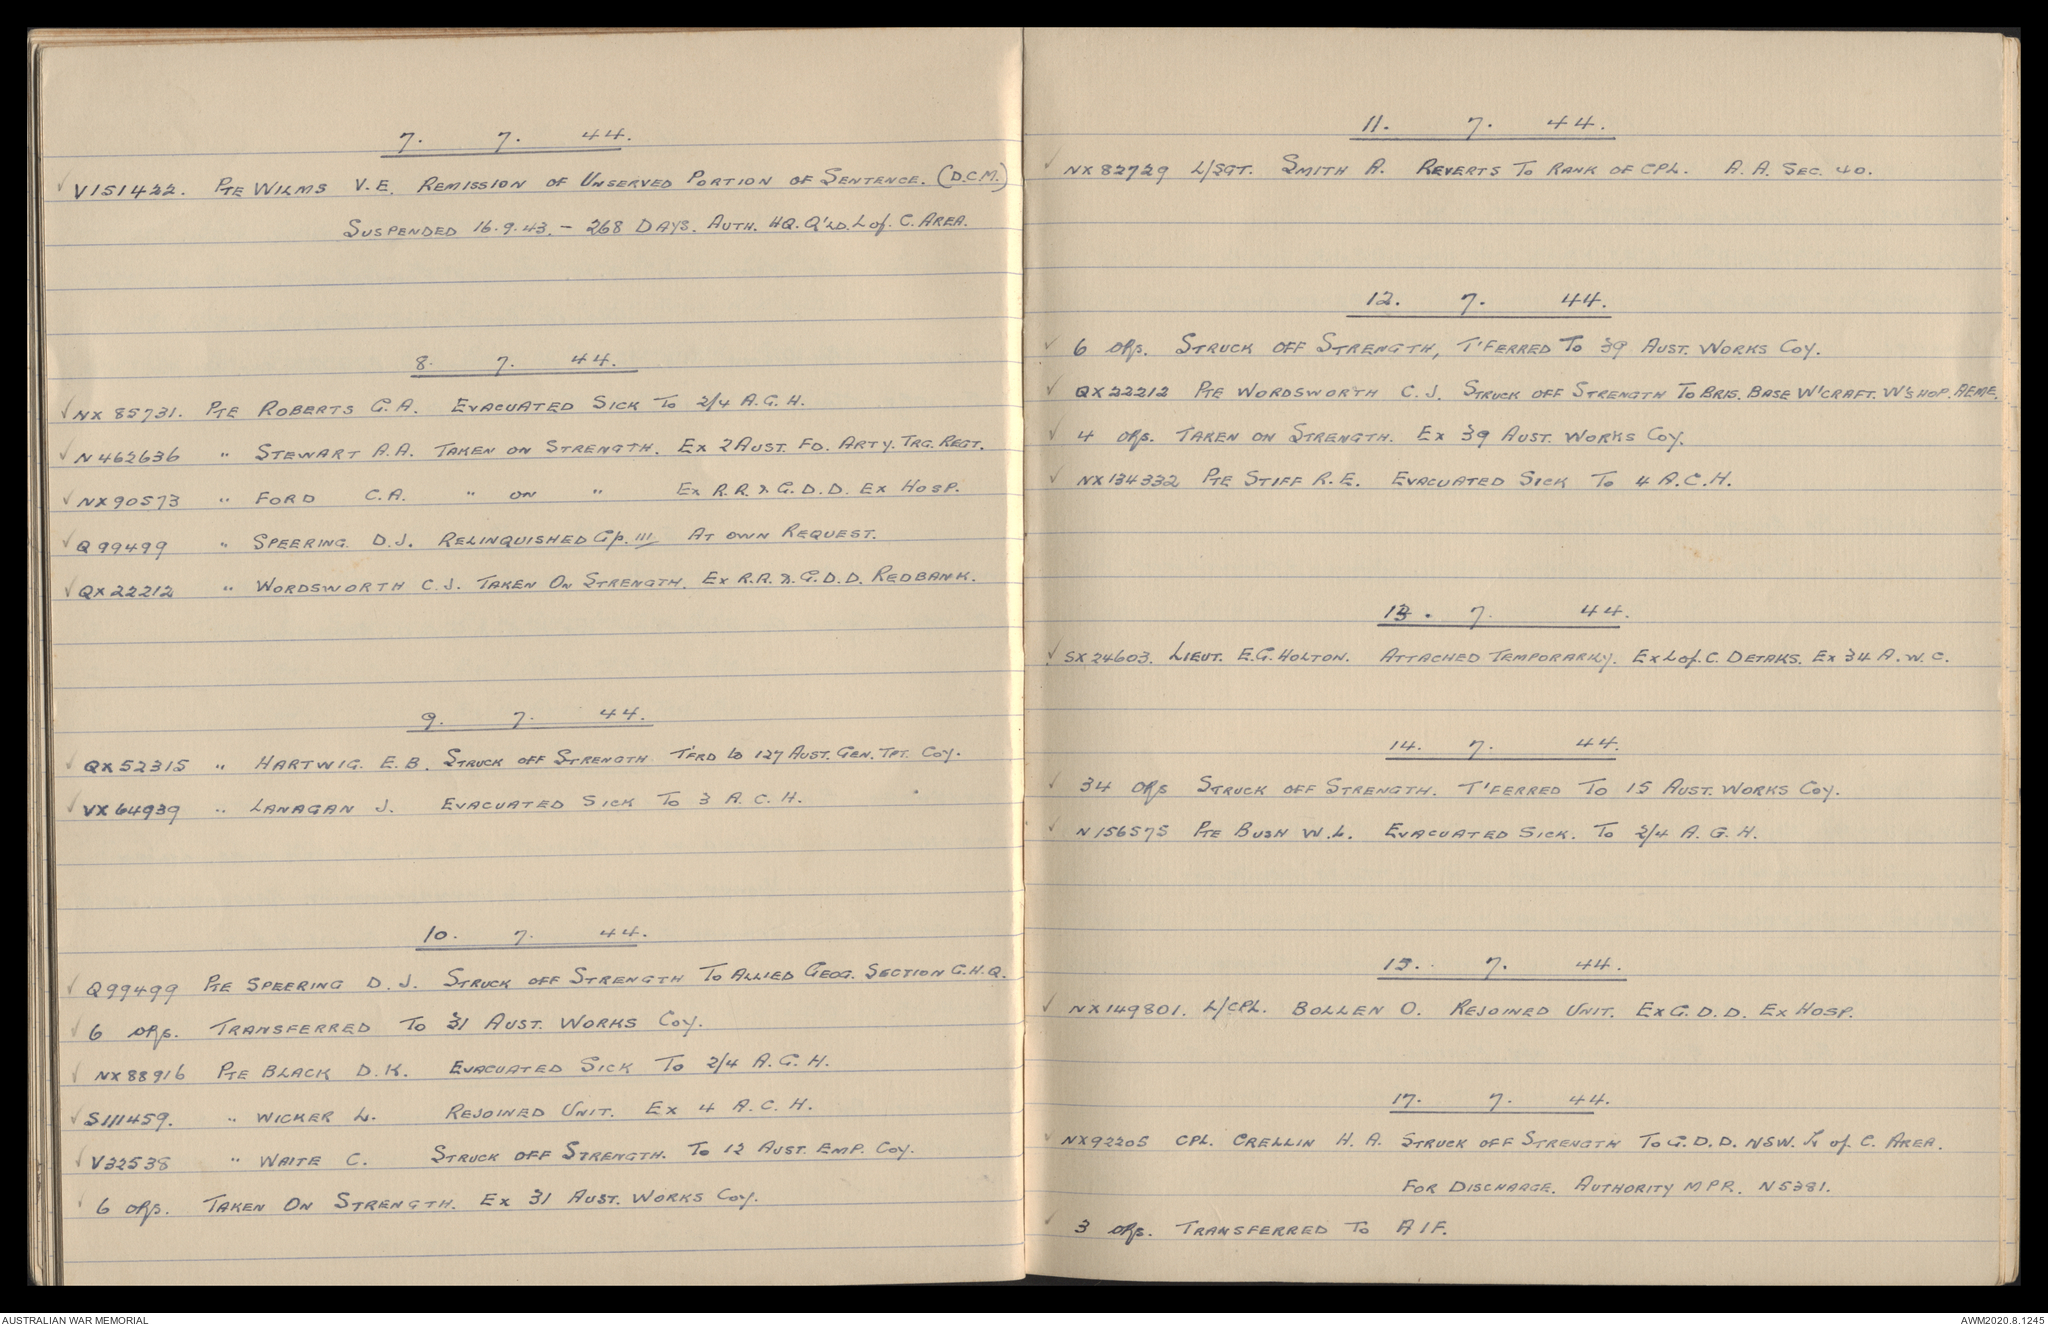 7. 7. 44.
✓ V151422. Pte Wilms V.E. Remission of Unserved Portion of Sentence. (D.C.M.)
Suspended 16.9.43. – 268 Days. Auth. HQ. Q'ld. L of. C. Area.
8. 7. 44.
✓ NX 85731. Pte Roberts G.A. Evacuated Sick To 2/4 A.G.H.
✓ N462636 " Stewart A.A. Taken on Strength. Ex 2 Aust. Fd. Arty. Trg. Regt.
✓ NX90573 " Ford C.A. " on " Ex R.R. & G.D.D. Ex Hosp.
✓ Q99499 " Speering D.J. Relinquished Gp. III At own Request.
✓ QX22212 " Wordsworth C.J. Taken On Strength. Ex R.R. & G.D.D. Redbank.
9. 7. 44.
✓ QX52315 " Hartwig. E.B. Struck off Strength T'frd to 127 Aust. Gen. Tpt. Coy.
✓ VX64939 " Lanagan J. Evacuated Sick To 3 A.C.H.
10. 7. 44.
✓ Q99499 Pte Speering D.J. Struck off Strength To Allied Geog. Section G.H.Q.
✓ 6 ORs. Transferred To 31 Aust. Works Coy.
✓ NX88916 Pte Black D.K. Evacuated Sick To 2/4 A.G.H.
✓ S111459. " Wicker L. Rejoined Unit. Ex 4 A.C.H.
✓ V32538 " Waite C. Struck off Strength. To 12 Aust. Emp. Coy.
✓ 6 ORs. Taken On Strength. Ex 31 Aust. Works Coy.
11. 7. 44.
✓ NX82729 L/Sgt. Smith A. Reverts To Rank of Cpl. A.A. Sec. 40.
12. 7. 44.
✓ 6 ORs. Struck off Strength, T'ferred To 39 Aust. Works Coy.
✓ QX22212 Pte Wordsworth C.J. Struck off Strength To Bris. Base W'craft. W'shop. AEME.
✓ 4 ORs. Taken on Strength. Ex 39 Aust. Works Coy.
✓ NX134332 Pte Stiff R.E. Evacuated Sick To 4 A.C.H.
13. 7. 44.
✓ SX24603. Lieut. E.G. Holton. Attached Temporarily. Ex L of. C. Details. Ex 34 A.W.C.
14. 7. 44.
✓ 34 ORs Struck off Strength. T'ferred To 15 Aust. Works Coy.
✓ N156575 Pte Bush W.L. Evacuated Sick. To 2/4 A.G.H.
15. 7. 44.
✓ NX149801. L/Cpl. Bollen O. Rejoined Unit. Ex G.D.D. Ex Hosp.
17. 7. 44.
✓ NX92205 Cpl. Crellin H.A. Struck off Strength To G.D.D. NSW. L of. C. Area.
For Discharge. Authority MPR. N5381.
✓ 3 ORs. Transferred To AIF.
AUSTRALIAN WAR MEMORIAL
AWM2020.8.1245